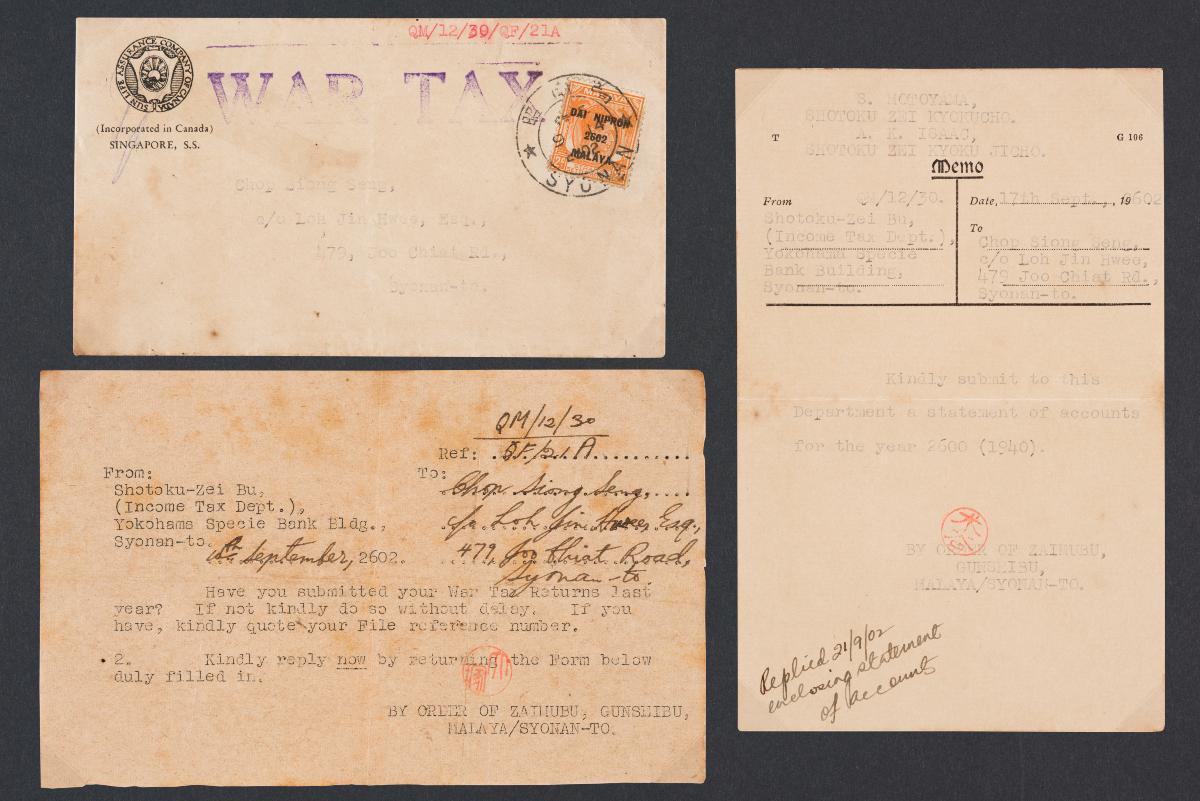 QM/12/30/QF/21A
SUN LIFE ASSURANCE COMPANY OF CANADA
(Incorporated in Canada)
SINGAPORE, S.S.
WAR TAX
MALAYA
DAI NIPPON
2602
MALAYA
SYONAN
Chop Siong Seng,
c/o Loh Jin Hwee, Esq.,
479, Joo Chiat Rd.,
Syonan-to.
QM/12/30
Ref: QF/21A
From:
Shotoku-Zei Bu,
(Income Tax Dept.),
Yokohama Specie Bank Bldg.,
Syonan-to.
September, 2602.
To:
Chop Siong Seng,
c/o Loh Jin Hwee, Esq.,
479, Joo Chiat Road,
Syonan-to.
Have you submitted your War Tax Returns last
year? If not kindly do so without delay. If you
have, kindly quote your File reference number.
2. Kindly reply now by returning the Form below
duly filled in.
BY ORDER OF ZAIMUBU, GUNSEIBU,
MALAYA/SYONAN-TO.
S. MOTOYAMA,
SHOTOKU ZEI KYOKUCHO.
A. K. ISAAC,
SHOTOKU ZEI KYOKU JICHO.
T
G 106
Memo
From QM/12/30.
Shotoku-Zei Bu,
(Income Tax Dept.),
Yokohama Specie
Bank Building,
Syonan-to.
Date, 17th Sept., 19 2602
To
Chop Siong Seng,
c/o Loh Jin Hwee,
479 Joo Chiat Rd.,
Syonan-to.
Kindly submit to this
Department a statement of accounts
for the year 2600 (1940).
BY ORDER OF ZAIMUBU,
GUNSEIBU,
MALAYA/SYONAN-TO.
Replied 21/9/02
enclosing statement
of account